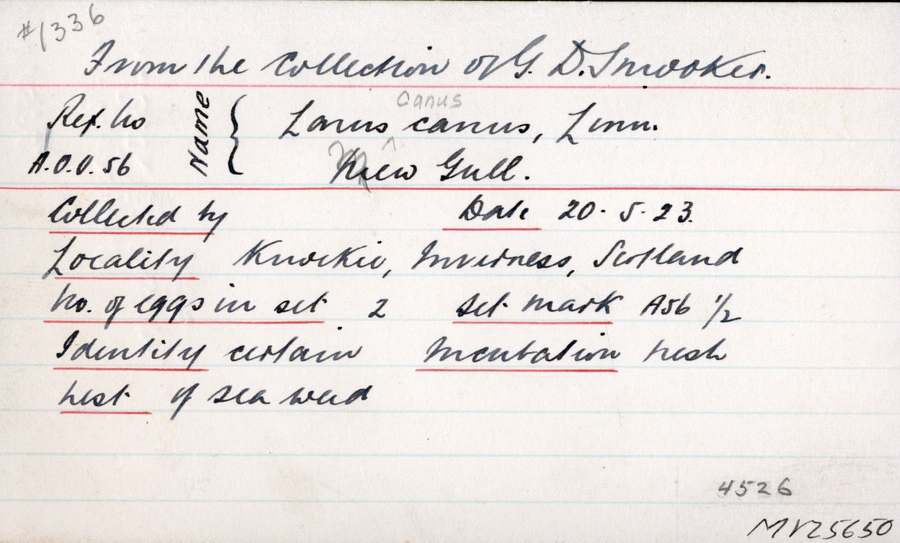 #1336
From the Collection of G. D. Smooker.
canus
Ref. No Name { Larus canus, Linn.
A.O.U. 56 Mew Gull.
Collected by Date 20. 5. 23.
Locality Knockie, Inverness, Scotland
No. of eggs in set 2 Set Mark A56 1/2
Identity certain Incubation fresh
Nest of sea weed
4526
MVZ5650